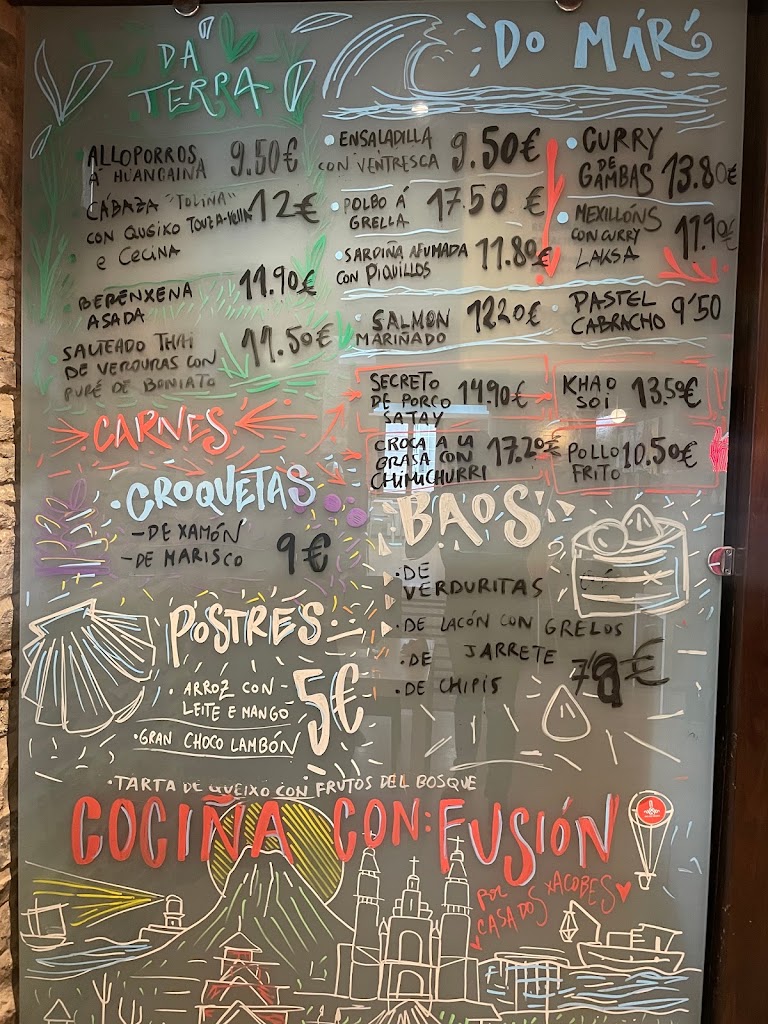 DA
TERRA
ALLOPORROS 9.50€
Á HUANCAINA
CABAZA "TOLIÑA" 12€
CON QUEIXO
E CECINA
BERENXENA 11.90€
ASADA
SALTEADO THAI 11.50€
DE VERDURAS CON
PURÉ DE BONIATO
DO MAR
ENSALADILLA 9.50€
CON VENTRESCA
POLBO Á 17.50€
GRELLA
SARDIÑA AFUMADA 11.80€
CON PIQUILLOS
SALMON 12.20€
MARIÑADO
CURRY
DE
GAMBAS 13.80€
MEXILLÓNS
CON CURRY 11.90€
LAKSA
PASTEL 9'50
CABRACHO
CARNES
SECRETO 14.90€
DE PORCO
SATAY
KHAO 13.50€
SOI
CROCA A LA 17.20€
BRASA CON
CHIMICHURRI
POLLO 10.50€
FRITO
CROQUETAS
-DE XAMÓN
-DE MARISCO 9€
BAOS
·DE
VERDURITAS
·DE LACÓN CON GRELOS
·DE JARRETE
·DE CHIPIS
POSTRES
·ARROZ CON- 5€
LEITE E MANGO
·GRAN CHOCO LAMBÓN
·TARTA DE QUEIXO CON FRUTOS DEL BOSQUE
COCIÑA CON:FUSIÓN
POR
CASA DOS XACOBES